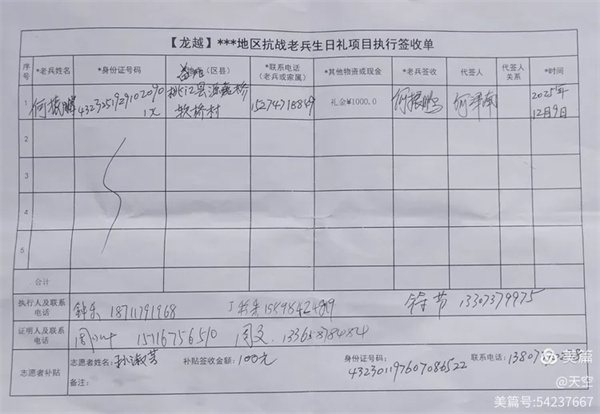 【龙越】***地区抗战老兵生日礼项目执行签收单
序号 *老兵姓名 *身份证号码 益阳(区县) *联系电话(老兵或家属) *其他物资或现金 *老兵签收 代签人 代签人关系 *时间
1 何振鹏 桃江县 软桥村 礼金¥1000.0 何振鹏 2025年12月9日
2
3
4
5
合计
执行人及联系电话 钟乐 18711791968 13307379975
证明人及联系电话 周 15716756510 周文
志愿者补贴 志愿者姓名: 孙淑芳 补贴签收金额: 100元 身份证号码: 432301197607086522 联系电话:
备注:
美篇
@天空
美篇号:54237667